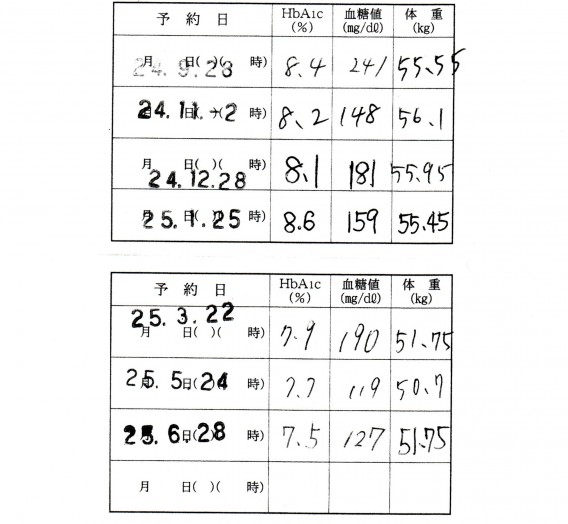 予約日 HbA1c (%) 血糖値 (mg/dℓ) 体重 (kg)
月 日( )( 時) 24.9.28 8.4 241 55.55
月 日( )( 時) 24.11.-2 8.2 148 56.1
月 日( )( 時) 24.12.28 8.1 181 55.95
月 日( )( 時) 25.1.25 8.6 159 55.45
予約日 HbA1c (%) 血糖値 (mg/dℓ) 体重 (kg)
25.3.22 月 日( )( 時) 7.9 190 51.75
月 日( )( 時) 25.5.24 7.7 119 50.7
月 日( )( 時) 25.6.28 7.5 127 51.75
月 日( )( 時)